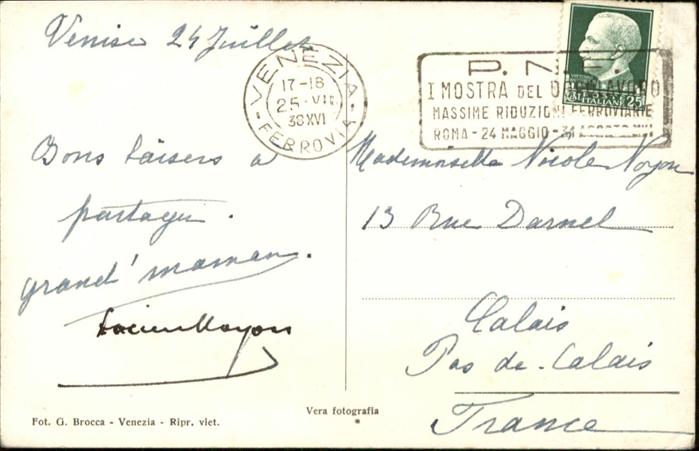 Venise 24 Juillet
VENEZIA
17-18
25·VII
38XVI
FERROVIA
P.N.F.
I MOSTRA DEL DOPOLAVORO
MASSIME RIDUZIONI FERROVIARIE
ROMA - 24 MAGGIO - 31 AGOSTO XVI
ITALIANE 25
Bons baisers à
partager.
grand'maman.
Lucien Noyon
Mademoiselle Nicole Noyon
13 Rue Darnel
Calais
Pas de-Calais
France
Fot. G. Brocca - Venezia - Ripr. viet.
Vera fotografia